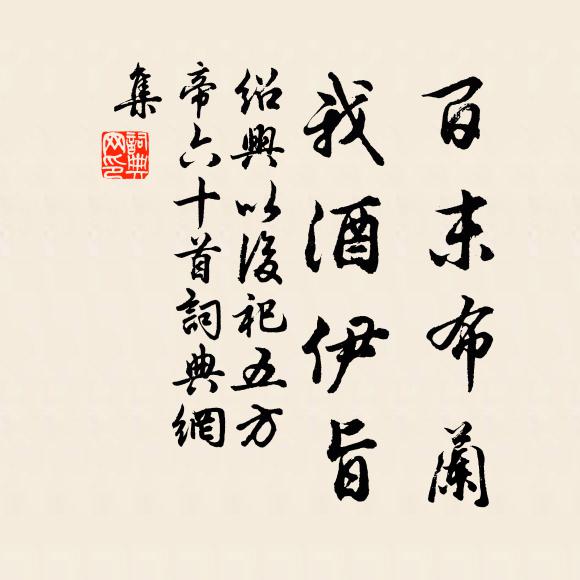 百末布蘭
我酒伊旨
紹興以後祀五方
帝六十首詞典網
集
詞典
網印